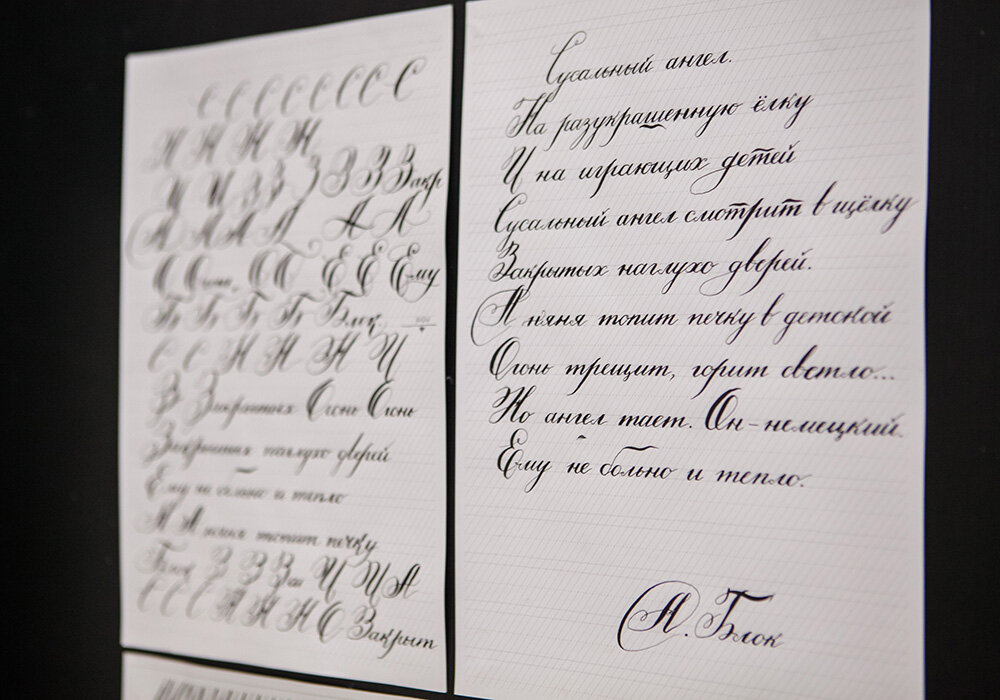 С С С С С С С С
Н Н Н Н
И И З З З З З З Закр
А А А А А А
О Огонь, О О Е Е Ему
Б Б Б Б Блок
С С Н Н Н И
З Закрытых Огонь Огонь
Закрытых наглухо дверей
Ему не больно и тепло
А А няня топит печку
Блок З З За И И А
С С С А А Н О Закрыт
Сусальный ангел.
На разукрашенную ёлку
И на играющих детей
Сусальный ангел смотрит в щёлку
Закрытых наглухо дверей.
А няня топит печку в детской
Огонь трещит, горит светло...
Но ангел тает. Он - немецкий.
Ему не больно и тепло.
А. Блок